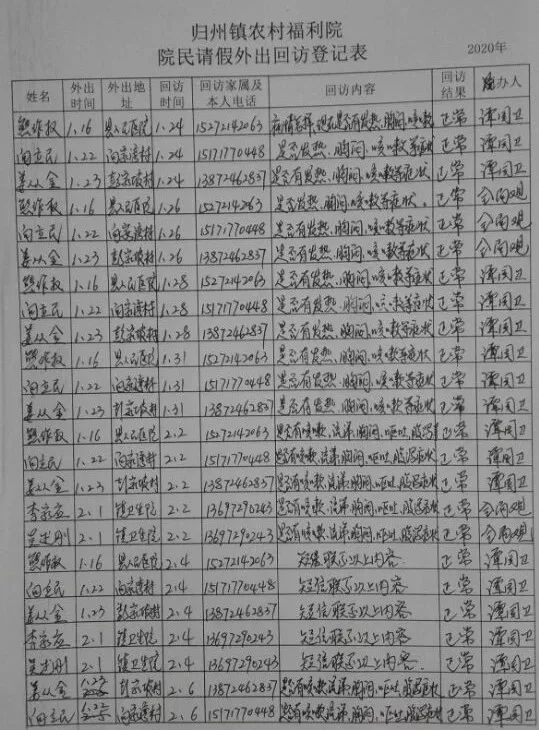 归州镇农村福利院
院民请假外出回访登记表
2020年
姓名 外出时间 外出地址 回访时间 回访家属及本人电话 回访内容 回访结果 办人
权 1.16 县人民医院 1.24 15272142063 病情怎样,现在是否有发热、胸闷、咳嗽 正常 谭国卫
向立民 1.22 向家湾村 1.24 15171770448 是否发热、胸闷、咳嗽等症状 正常 谭国卫
姜从金 1.23 彭家坡村 1.24 13872462837 是否有发热、胸闷、咳嗽等症状 正常 谭国卫
权 1.16 县人民医院 1.26 15272142063 是否有发热、胸闷、咳嗽等症状. 正常
向立民 1.22 向家湾村 1.26 15171770448 是否有发热、胸闷、咳嗽等症状 正常
姜从金 1.23 彭家坡村 1.26 13872462837 是否有发热、胸闷、咳嗽等症状 正常
权 1.16 县人民医院 1.28 15272142063 是否有发热、胸闷、咳嗽等症状 正常 谭国卫
向立民 1.22 向家湾村 1.28 15171770448 是否有发热、胸闷、咳嗽等症状 正常 谭国卫
姜从金 1.23 彭家坡村 1.28 13872462837 是否有发热、胸闷、咳嗽等症状 正常 谭国卫
权 1.16 县人民医院 1.31 15272142063 是否有发热、胸闷、咳嗽等症状 正常 谭国卫
向立民 1.22 向家湾村 1.31 15171770448 是否有发热、胸闷、咳嗽等症状 正常 谭国卫
姜从金 1.23 彭家坡村 1.31 13872462837 是否有发热、胸闷、咳嗽等症状 正常 谭国卫
权 1.16 县人民医院 2.2 15272142063 是否有咳嗽、流涕、胸闷、呕吐、腹泻 正常 谭国卫
向立民 1.22 向家湾村 2.2 15171770448 是否有咳嗽、流涕、胸闷、呕吐、腹泻症状 正常 谭国卫
姜从金 1.23 彭家坡村 2.2 13872462837 是否有咳嗽、流涕、胸闷、呕吐、腹泻症状 正常 谭国卫
李家 2.1 镇卫生院 2.2 13697290243 是否有咳嗽、流涕、胸闷、呕吐、腹泻症状 正常
吴 2.1 镇卫生院 2.2 13697290243 是否有咳嗽、流涕、胸闷、呕吐、腹泻症状 正常
权 1.16 县人民医院 2.4 15272142063 短信联系以上内容 正常 谭国卫
向立民 1.22 向家湾村 2.4 15171770448 短信联系以上内容 正常 谭国卫
姜从金 1.23 彭家坡村 2.4 13872462837 短信联系以上内容 正常 谭国卫
李家 2.1 镇卫生院 2.4 13697290243 短信联系以上内容 正常 谭国卫
吴 2.1 镇卫生院 2.4 13697290243 短信联系以上内容. 正常 谭国卫
姜从金 彭家坡村 2.6 13872462837 是否有咳嗽、流涕、胸闷、呕吐、腹泻症状 正常 谭国卫
向立民 向家湾村 2.6 15171770448 是否有咳嗽、流涕、胸闷、呕吐、腹泻症状 正常 谭国卫